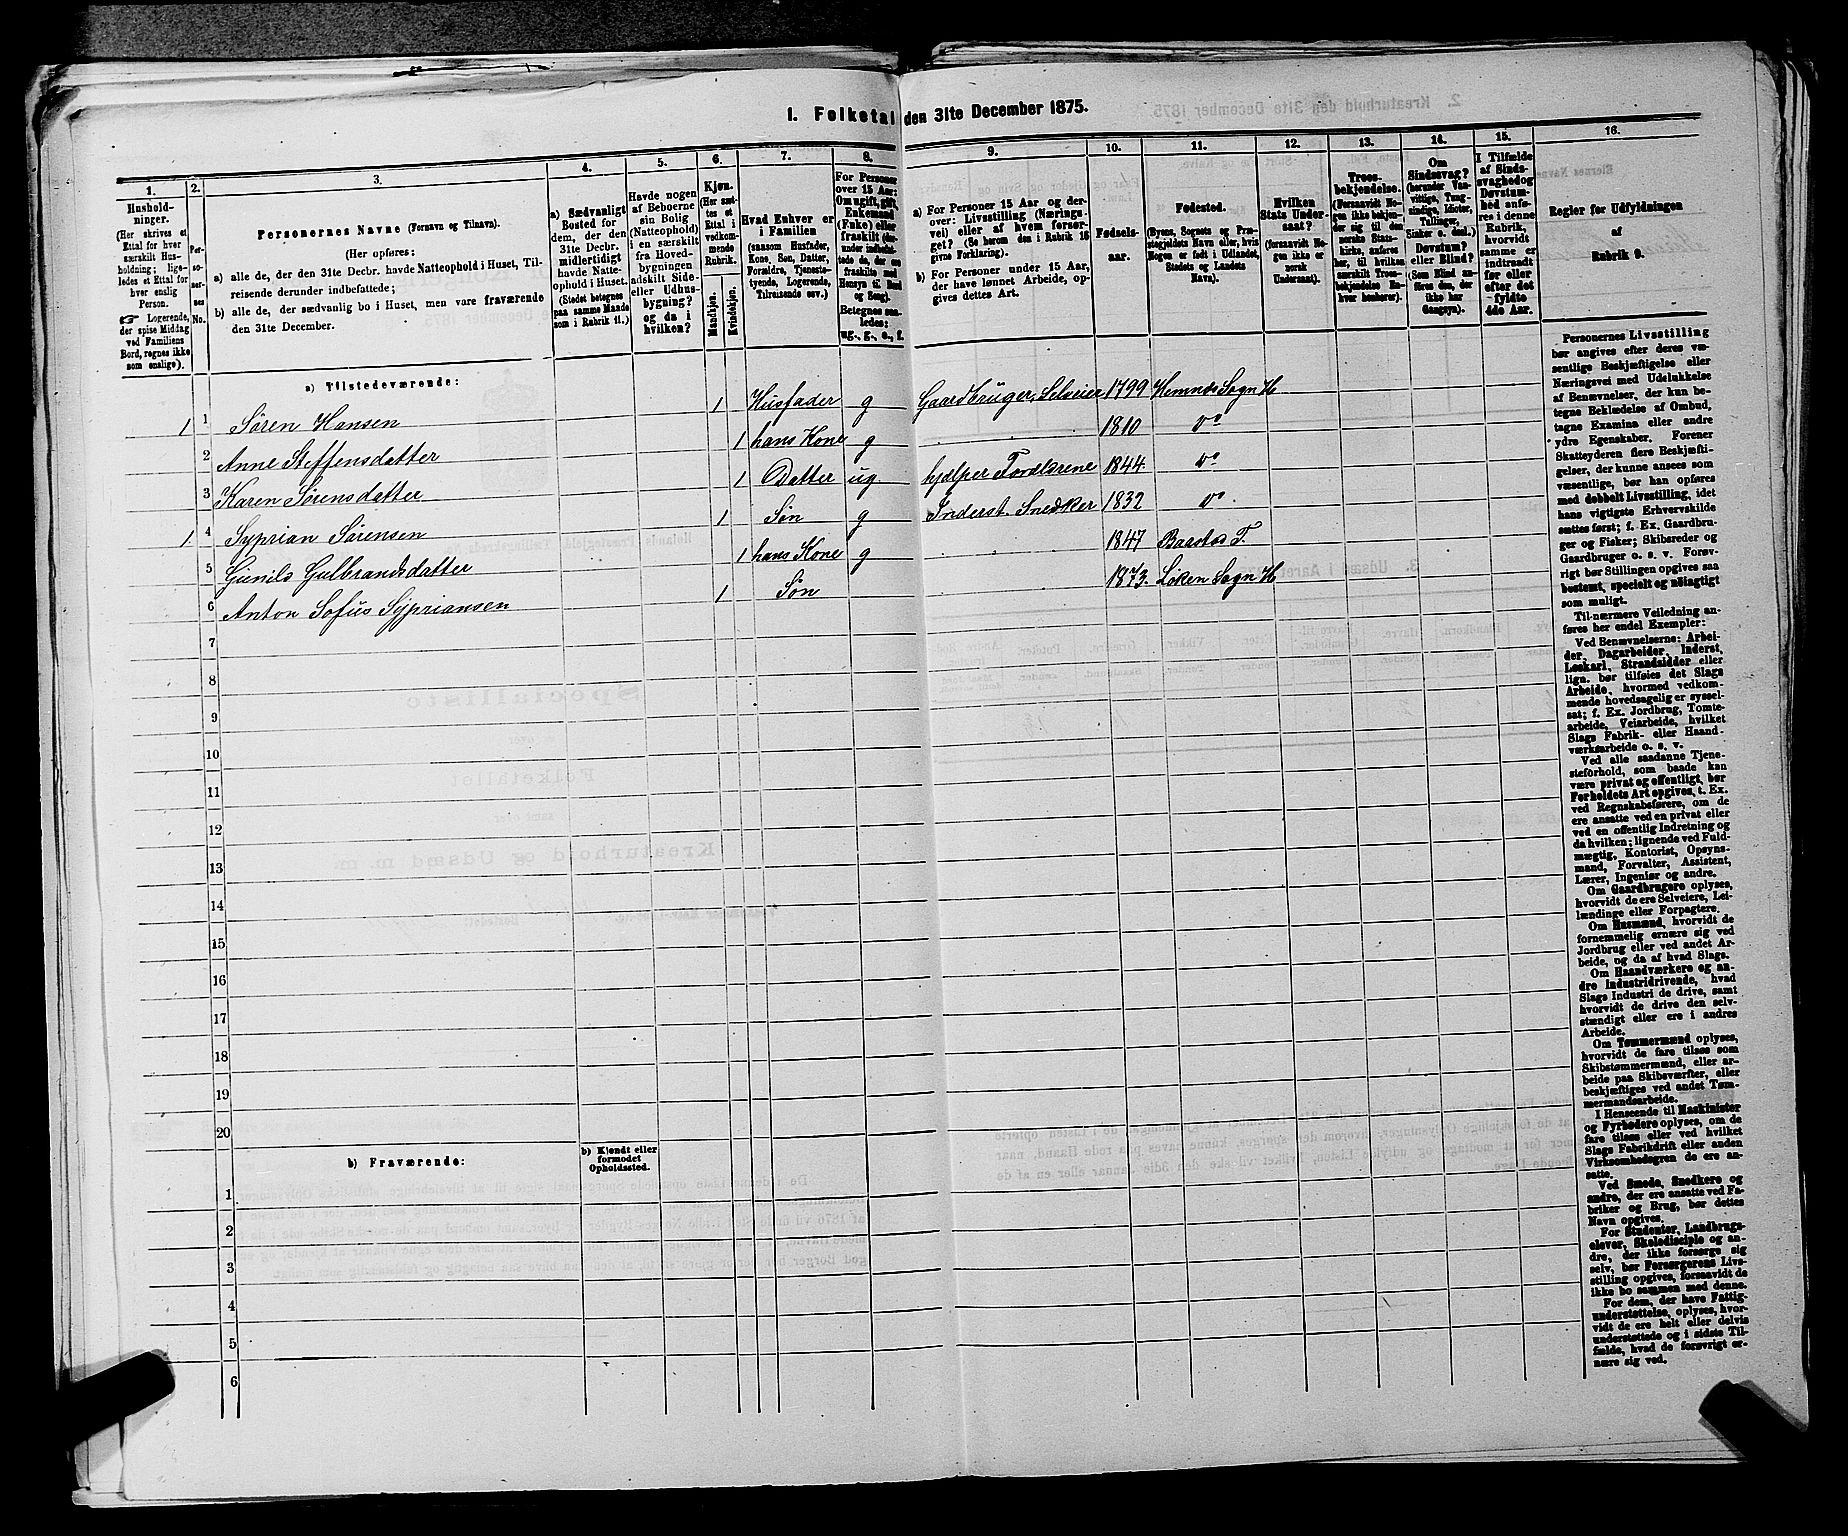 1. Folketal den 31te December 1875.
1.
Hushold-
ninger.
(Her skrives et
Ettal for hver
særskilt Hus-
holdning; lige-
ledes et Ettal for
hver enslig
Person.
☞ Logerende,
der spise Middag
ved Familiens
Bord, regnes ikke
som enslige).
2.
Per-
so-
ner-
nes
No.
3.
Personernes Navne (Fornavn og Tilnavn).
(Her opføres:
a) alle de, der den 31te Decbr. havde Natteophold i Huset, Til-
reisende derunder indbefattede;
b) alle de, der sædvanlig bo i Huset, men vare fraværende
den 31te December.
4.
a) Sædvanligt
Bosted for
dem, der den
31te Decbr.
midlertidigt
havde Natte-
ophold i Huset.
(Stedet betegnes
paa samme Maade
som i Rubrik 11.)
5.
Havde nogen
af Beboerne
sin Bolig
(Natteophold)
i en særskilt
fra Hoved-
bygningen
adskilt Side-
eller Udhus-
bygning?
og da i
hvilken?
6.
Kjøn.
(Her sæt-
tes et
Ettal i
vedkom-
mende
Rubrik.
Mandkjøn.
Kvindekjøn.
7.
Hvad Enhver er
i Familien
(saasom Husfader,
Kone, Søn, Datter,
Forældre, Tjeneste-
tyende, Logerende,
Tilreisende osv.)
8.
For Personer
over 15 Aar:
Om ugift, gift,
Enkemand
(Enke) eller
fraskilt
Betegnes saa-
ledes:
ug., g., e., f.
9.
a) For Personer 15 Aar og der-
over: Livsstilling (Nærings-
vei) eller af hvem forsør-
get? (Se herom den i Rubrik 16
givne Forklaring).
b) For Personer under 15 Aar,
der have lønnet Arbeide, op-
gives dettes Art.
10.
Fødsels-
aar.
11.
Fødested.
(Byens, Sognets og Præ-
stegjeldets Navn eller, hvis
Nogen er født i Udlandet,
Stedets og Landets
Navn).
12.
Hvilken
Stats Under-
saat?
(forsaavidt No-
gen ikke er
norsk
Undersaat).
13.
Troes-
bekjendelse.
(Forsaavidt No-
gen ikke bekjen-
der sig til den
norske Stats-
kirke, anføres
her, til hvilken
særskilt Troes-
bekjendelse En-
hver henhører).
14.
Om
Sindssvag?
(herunder Van-
vittige, Tung-
sindige, Idioter,
Tullinger,
Sinker o. desl.)
Døvstum?
eller Blind?
(Som Blind an-
føres den, der
ikke har
Gangsyn).
15.
I Tilfælde
af Sinds-
svaghed og
Døvstum-
hed anfø-
res i denne
Rubrik,
hvorvidt
samme er
indtraadt
før eller
efter det
fyldte
4de Aar.
16.
Regler for Udfyldningen
af
Rubrik 9.
a) Tilstedeværende:
1 1 Søren Hansen 1 Husfader g Gaardbruger, Selveier 1799 Hemnes Sogn H
2 Anne Steffensdatter 1 hans Kone g 1810 do
3 Karen Sørensdatter 1 Datter ug. hjelper Forældrene 1844 do
1 4 Syprian Sørensen 1 Søn g Inderst. Snedker 1832 do
5 Gunild Gulbrandsdatter 1 hans Kone g 1847 Baastad T.
6 Anton Sofus Sypriansen 1 Søn 1873. Løken Sogn H
7
8
9
10
11
12
13
14
15
16
17
18
19
20
b) Fraværende:
b) Kjendt eller
formodet
Opholdssted.
1
2
3
4
5
6
Personernes Livsstilling
bør angives efter deres væ-
sentlige Beskjæftigelse eller
Næringsvei med Udelukkelse
af Benævnelser, der kun be-
tegne Beklædelse af Ombud,
tagne Examina eller andre
ydre Egenskaber. Forener
Skatteyderen flere Beskjæfti-
gelser, der kunne ansees som
væsentlige, bør han opføres
med dobbelt Livsstilling, idet
hans vigtigste Erhvervskilde
sættes først; f. Ex. Gaardbru-
ger og Fisker; Skibsreder og
Gaardbruger o. s. v. Forøv-
rigt bør Stillingen opgives saa
bestemt, specielt og nøiagtigt
som muligt.
Til nærmere Veiledning an-
føres her endel Exempler:
Ved Benævnelserne: Arbei-
der, Dagarbeider, Inderst,
Løskarl, Strandsidder eller
lign. bør tilføies det Slags
Arbeide, hvormed vedkom-
mende hovedsagelig er syssel-
sat; f. Ex. Jordbrug, Tomte-
arbeide, Veiarbeide, hvilket
Slags Fabrik- eller Haand-
værksarbeide o. s. v.
Ved alle saadanne Tjene-
steforhold, som baade kan
være privat og offentligt, bør
Forholdets Art opgives, t. Ex.
ved Regnskabsførere, om de
ere ansatte ved en privat eller
ved en offentlig Indretning og
da hvilken; lignende ved Fuld-
mægtig, Kontorist, Opsyns-
mand, Forvalter, Assistent,
Lærer, Ingeniør og andre.
Om Gaardbrugere oplyses,
hvorvidt de ere Selveiere, Lei-
lændinge eller Forpagtere.
Om Husmænd, hvorvidt de
fornemmelig ernære sig ved
Jordbrug eller ved andet Ar-
beide, og da af hvad Slags.
Om Haandværkere og an-
dre Industridrivende, hvad
Slags Industri de drive, samt
hvorvidt de drive den selv-
stændigt eller ere i andres
Arbeide.
Om Tømmermænd oplyses,
hvorvidt de fare tilsøs som
Skibstømmermænd, eller ar-
beide paa Skibsværfter, eller
beskjæftiges ved andet Tøm-
mermandsarbeide.
I Henseende til Maskinister
og Fyrbødere oplyses, om de
fare tilsøs eller ved hvilket
Slags Fabrikdrift eller anden
Virksomhedsgren de ere an-
satte.
Ved Smede, Snedkere og
andre, der ere ansatte ved Fa-
briker og Brug, bør dettes
Navn opgives.
For Studenter, Landbrugs-
elever, Skoledisciple og an-
dre, der ikke forsørge sig
selv, bør Forsørgerens Livs-
stilling opgives, forsaavidt de
ikke bo sammen med denne.
For dem, der have Fattig-
understøttelse, oplyses, hvor-
vidt de ere helt eller delvis
understøttede og i sidste Til-
fælde, hvad de forøvrigt er-
nære sig ved.